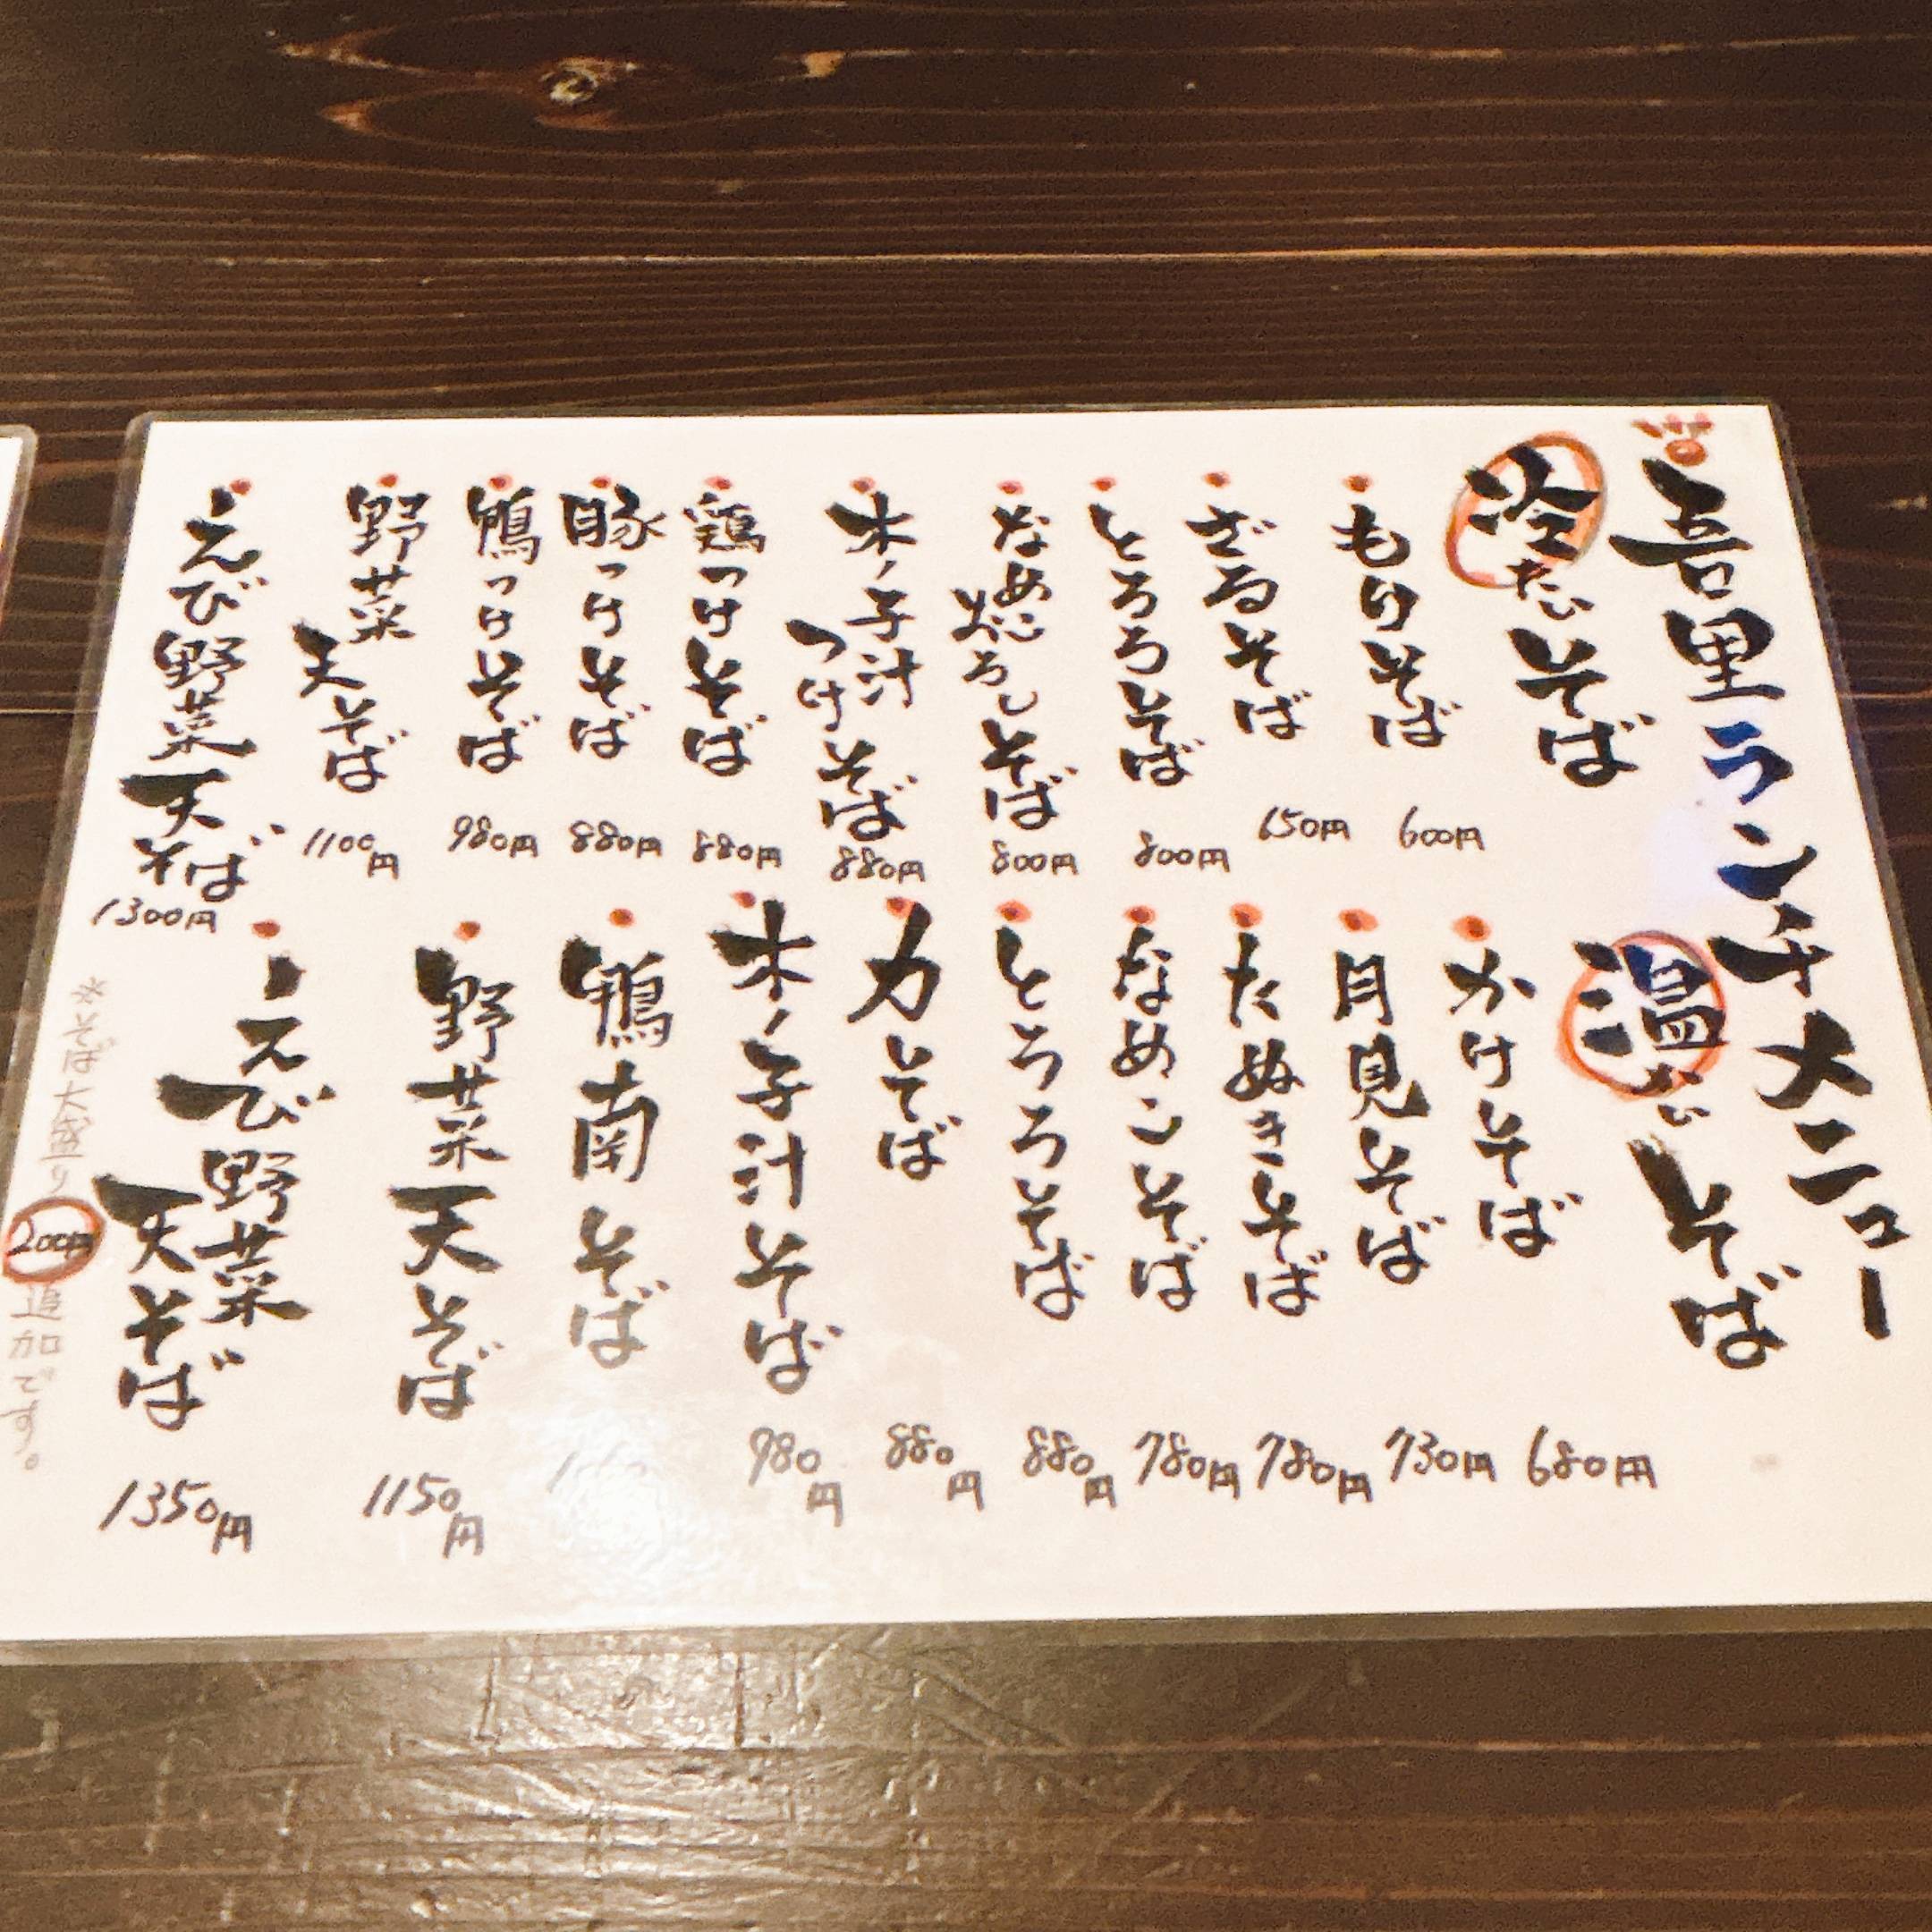 吾里ランチメニュー
冷たいそば
もりそば
600円
ざるそば
650円
とろろそば
800円
なめこおろしそば
800円
木ノ子汁つけそば
880円
鶏つけそば
880円
豚つけそば
880円
鴨つけそば
980円
野菜天そば
1100円
えび野菜天そば
1300円
温かいそば
かけそば
680円
月見そば
730円
たぬきそば
780円
なめこそば
780円
とろろそば
880円
力そば
880円
木ノ子汁そば
980円
鴨南そば
野菜天そば
1150円
えび野菜天そば
1350円
※そば大盛り200円追加です。